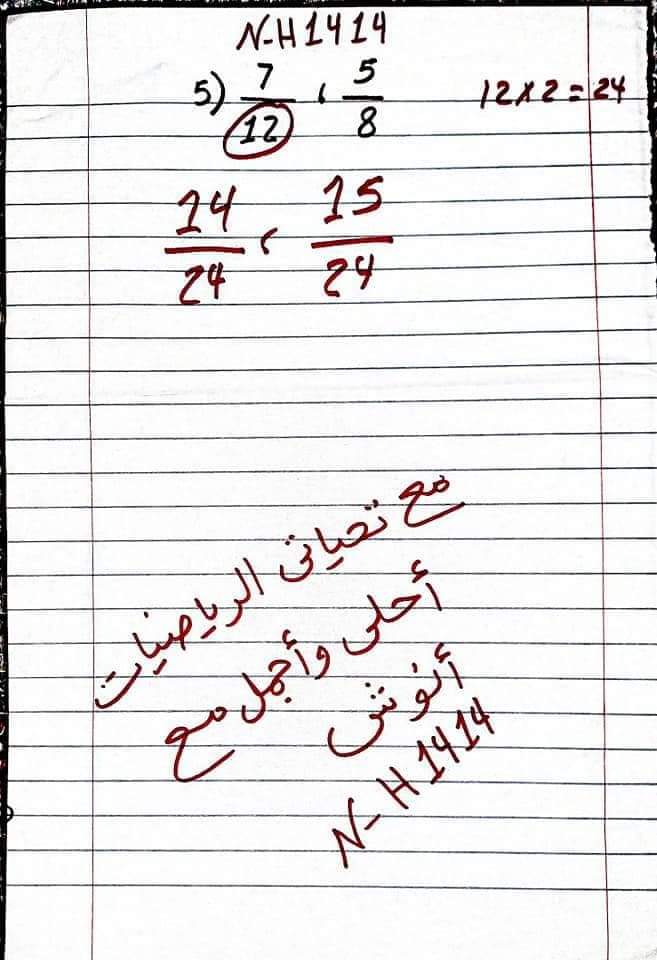 N-H 1414
5) 7/12 ، 5/8 12x2=24
14/24 ، 15/24
مع تحياتى الرياضيات
أحلى وأجمل مع
أنوش
N-H 1414